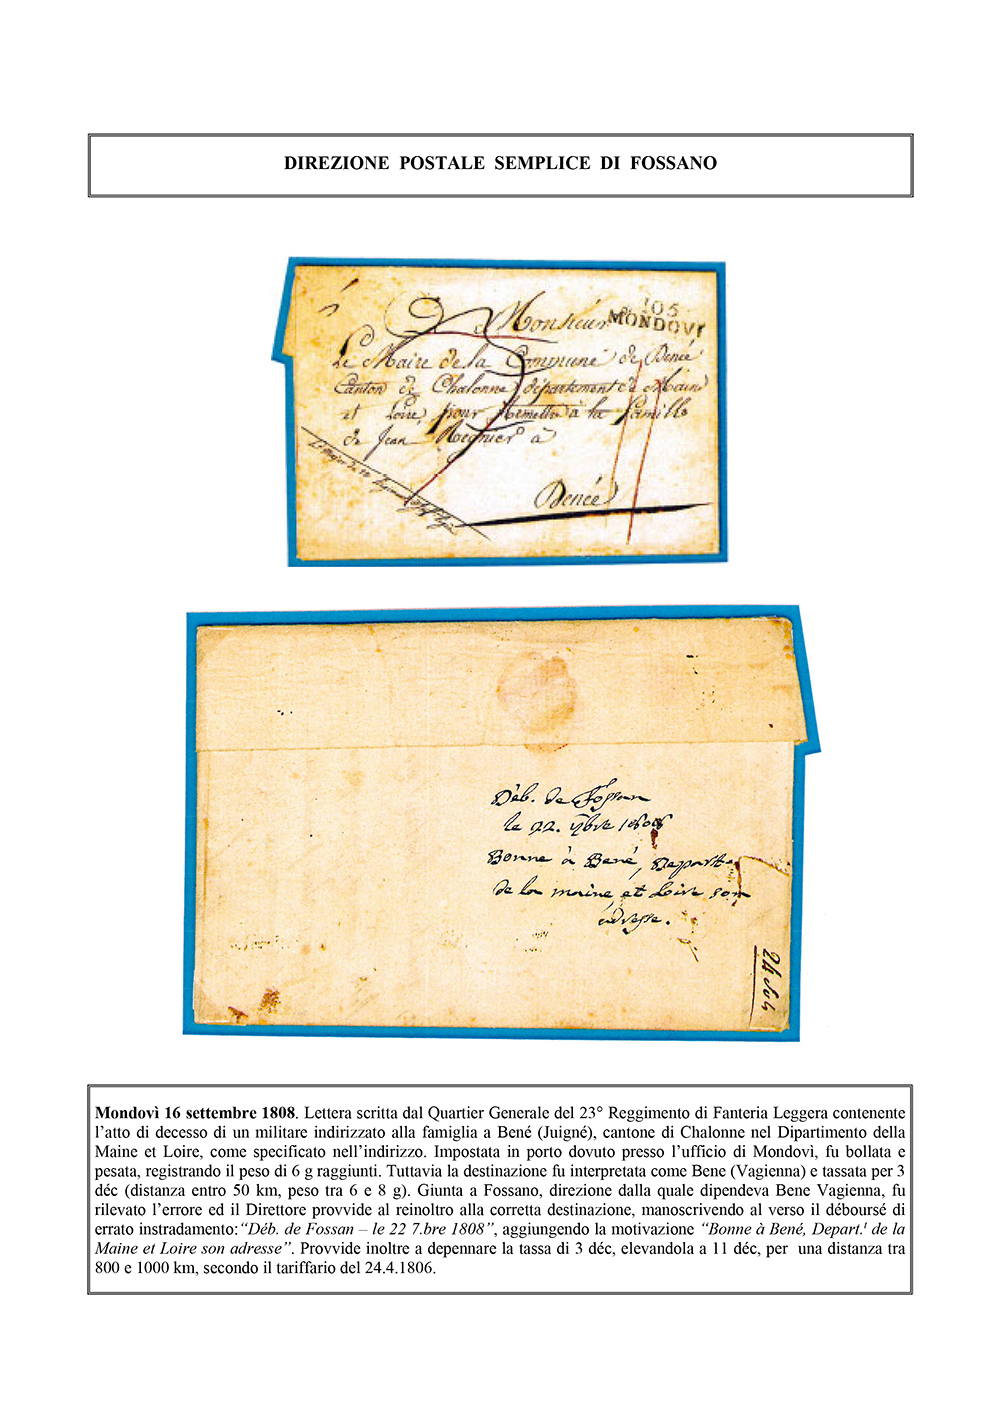 DIREZIONE POSTALE SEMPLICE DI FOSSANO
105
MONDOVI
a Monsieur
Le Maire de la Commune de Benée
Canton de Chalonne département de Maine
et Loire, pour Remettre à la famille
de Jean Regnier à
Benée
Déb. de Fossan
le 22. 7bre 1808
Bonne à Bené, Depart.
de la maine et Loire son
adresse.
Mondovì 16 settembre 1808. Lettera scritta dal Quartier Generale del 23° Reggimento di Fanteria Leggera contenente
l’atto di decesso di un militare indirizzato alla famiglia a Bené (Juigné), cantone di Chalonne nel Dipartimento della
Maine et Loire, come specificato nell’indirizzo. Impostata in porto dovuto presso l’ufficio di Mondovì, fu bollata e
pesata, registrando il peso di 6 g raggiunti. Tuttavia la destinazione fu interpretata come Bene (Vagienna) e tassata per 3
déc (distanza entro 50 km, peso tra 6 e 8 g). Giunta a Fossano, direzione dalla quale dipendeva Bene Vagienna, fu
rilevato l’errore ed il Direttore provvide al reinoltro alla corretta destinazione, manoscrivendo al verso il déboursé di
errato instradamento:“Déb. de Fossan – le 22 7.bre 1808”, aggiungendo la motivazione “Bonne à Bené, Depart.t de la
Maine et Loire son adresse”. Provvide inoltre a depennare la tassa di 3 déc, elevandola a 11 déc, per una distanza tra
800 e 1000 km, secondo il tariffario del 24.4.1806.